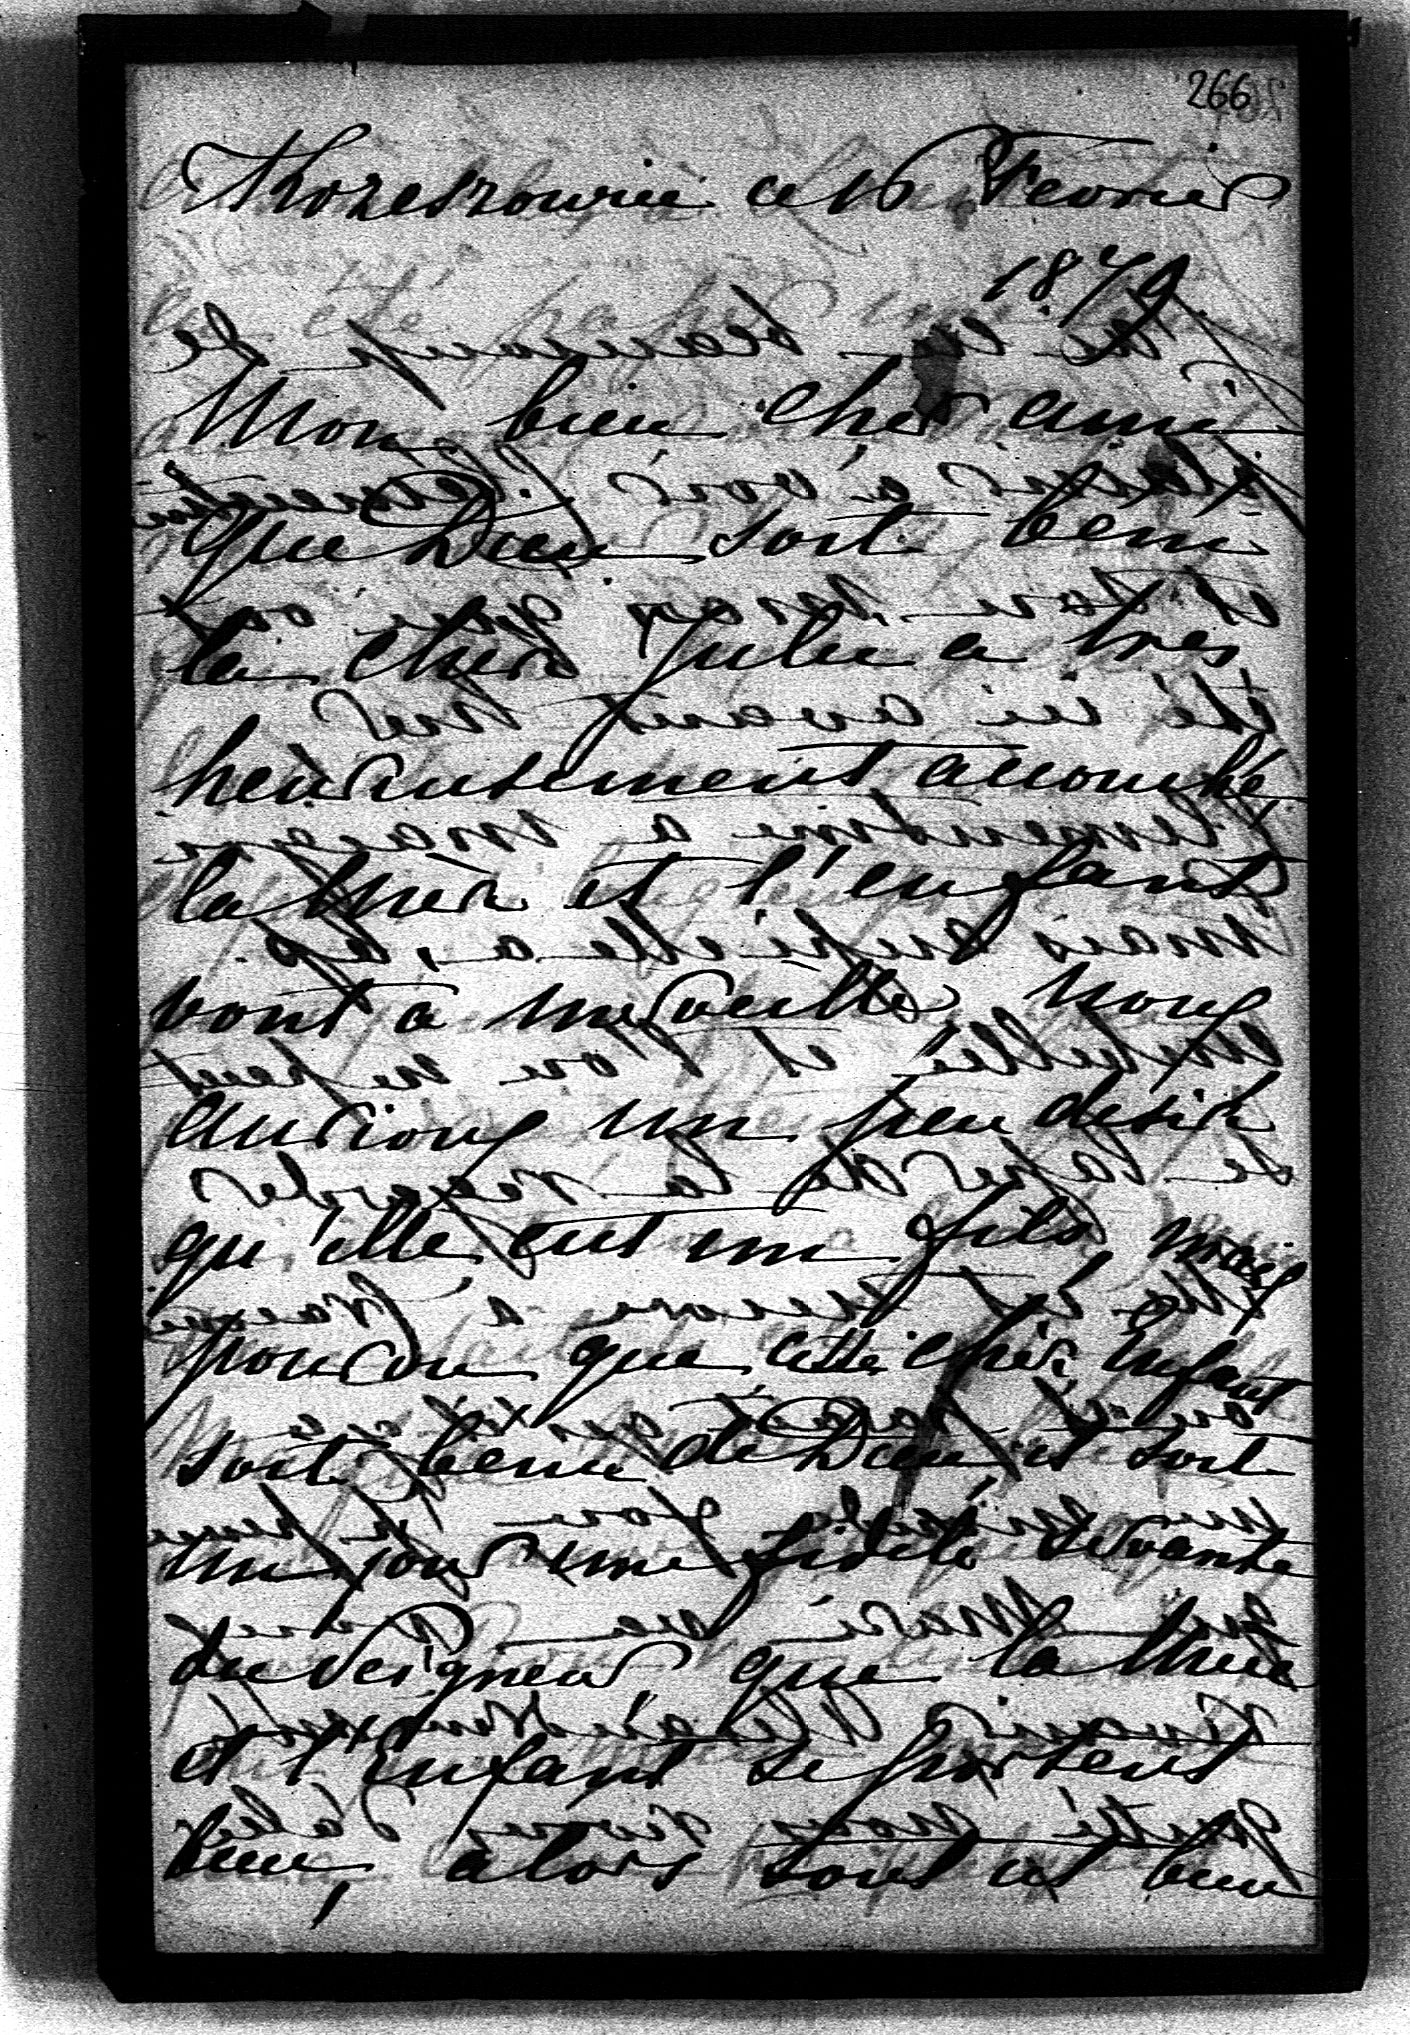 266
ce 16 Fevrier
1879
Mon bien cher ami
que Dieu soit beni
la cher Julie a tres
heureusement accouché,
la mèr et l'enfant
vont a merveille, nous
aurions un peu desir
qu'elle eut un fils, mais
pourvu que cette chèr enfant
soit beni de Dieu, et soit
un jour une fidele servante
du Seigneur, que la mere
et l'enfant se portent
bien, alors tout est bien